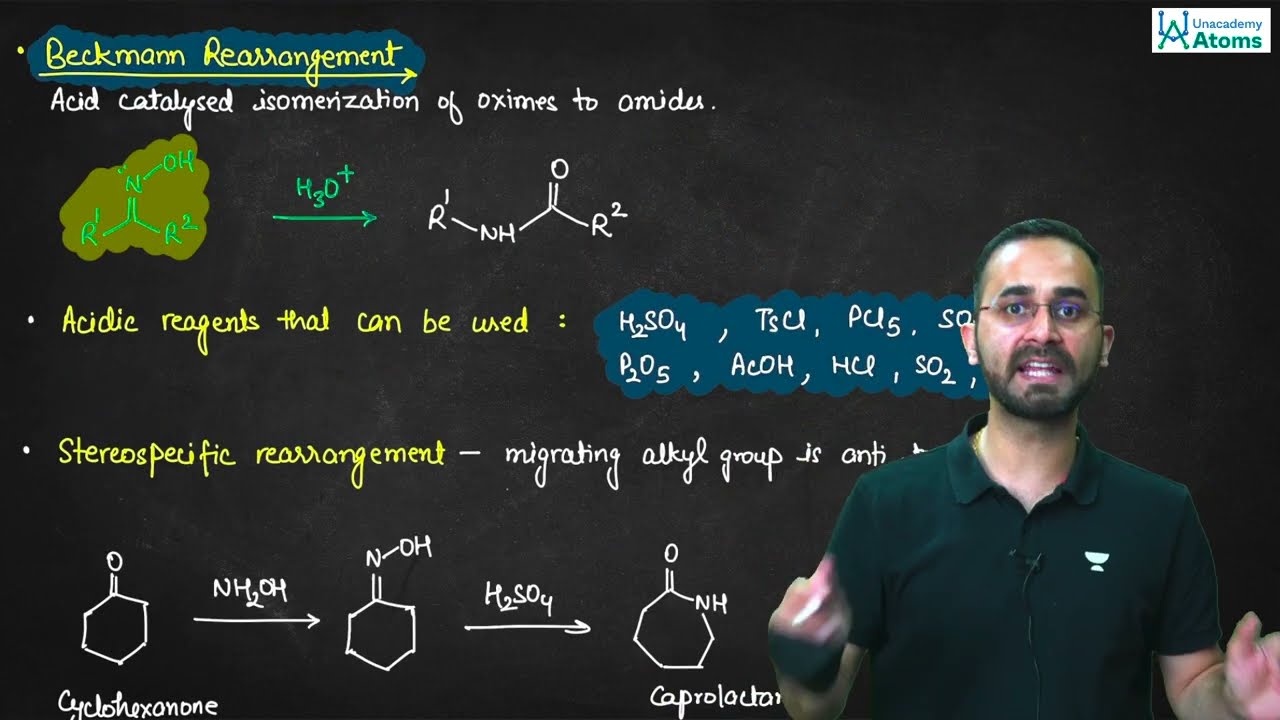 Unacademy
Atoms
• Beckmann Rearrangement
Acid catalysed isomerization of oximes to amides.
N OH
R¹ R²
H₃O⁺
O
R¹ NH R²
• Acidic reagents that can be used : H₂SO₄ , TsCl, PCl₅,
P₂O₅ , AcOH, HCl , SO₂ ,
• Stereospecific rearrangement – migrating alkyl group is anti
O
NH₂OH
N OH
H₂SO₄
O
NH
Cyclohexanone